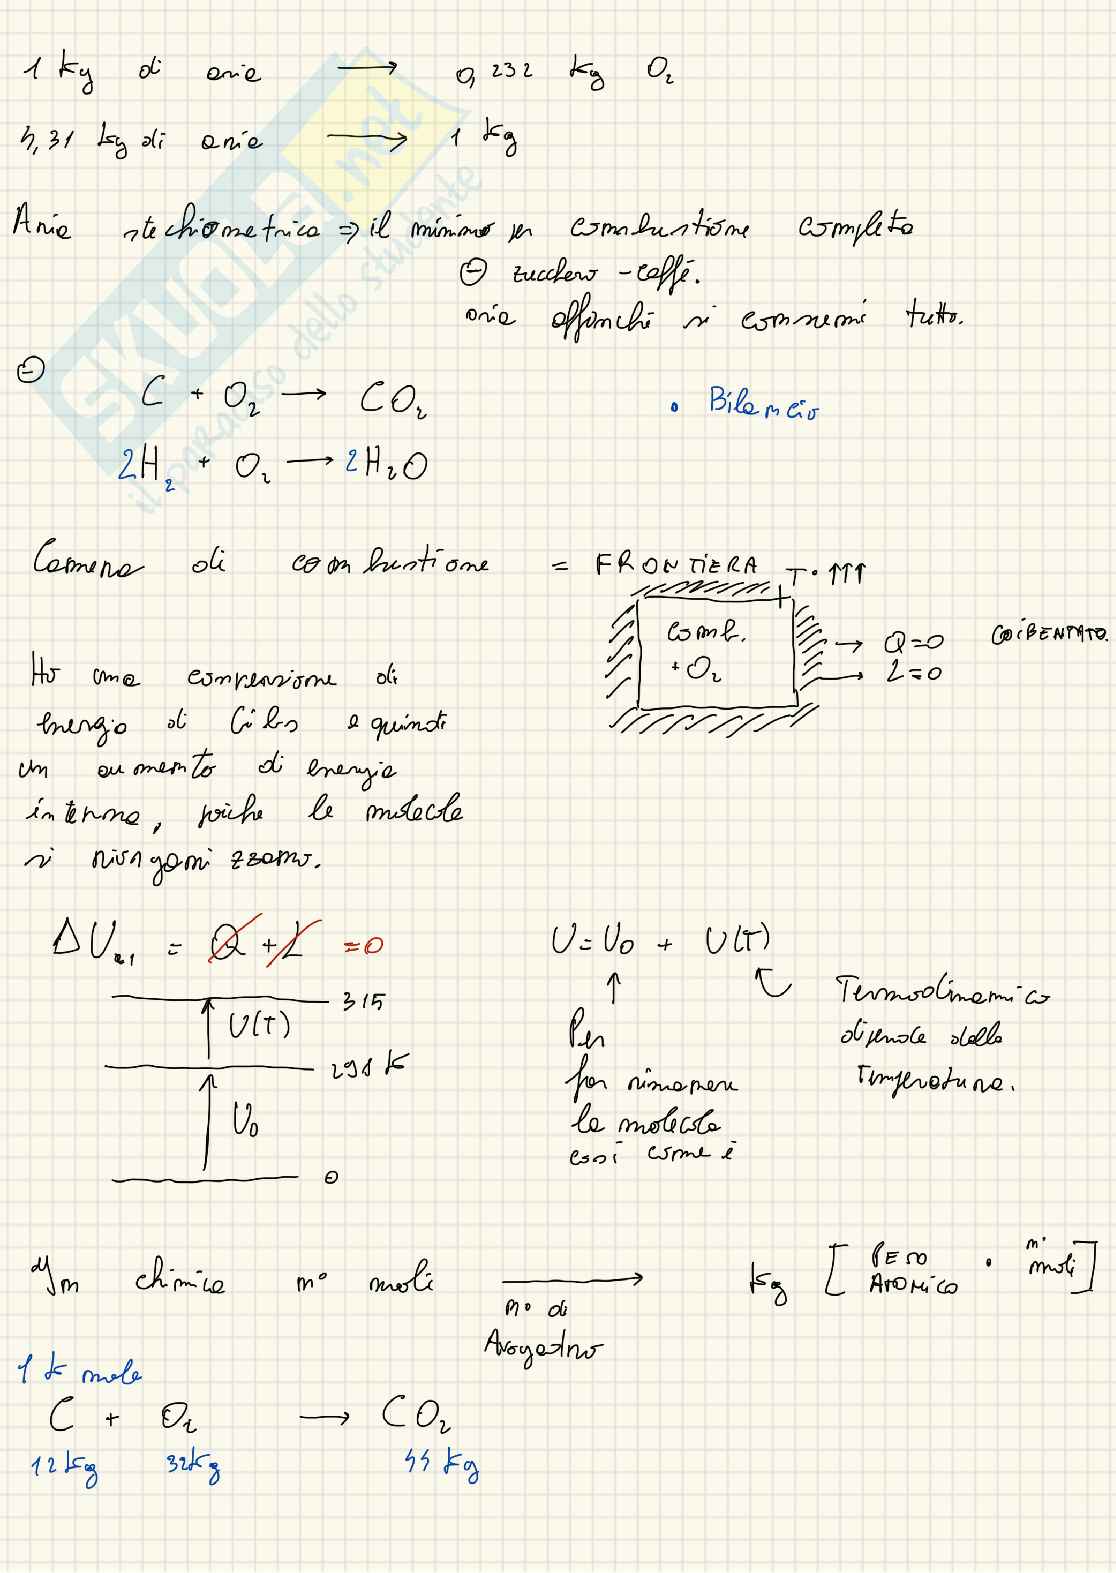 1 kg di aria → 0,232 kg O₂
4,31 kg di aria → 1 kg
Aria stechiometrica ⇒ il minimo per combustione completa
⊖ zucchero - caffè.
aria affinché si consumi tutto.
⊖
C + O₂ → CO₂
• Bilancio
2H₂ + O₂ → 2H₂O
Camera di combustione = FRONTIERA T° ↑↑↑
comb.
+ O₂
→ Q=0
→ L=0
COIBENTATO.
Ho una conversione di
energia di Gibs e quindi
un aumento di energia
interna, poiche le molecole
si riorganizzano.
ΔU₂,₁ = Q + L = 0
U = U₀ + U(T)
315
U(T)
291 K
U₀
0
Per
far rimanere
la molecola
così come è
Termodinamica
dipende dalla
Temperatura.
In chimica n° moli → kg [PESO ATOMICO • n° moli]
n° di
Avogadro
1 k mole
C + O₂ → CO₂
12 kg 32 kg 44 kg
SKUOLA.net
il paradiso dello studente